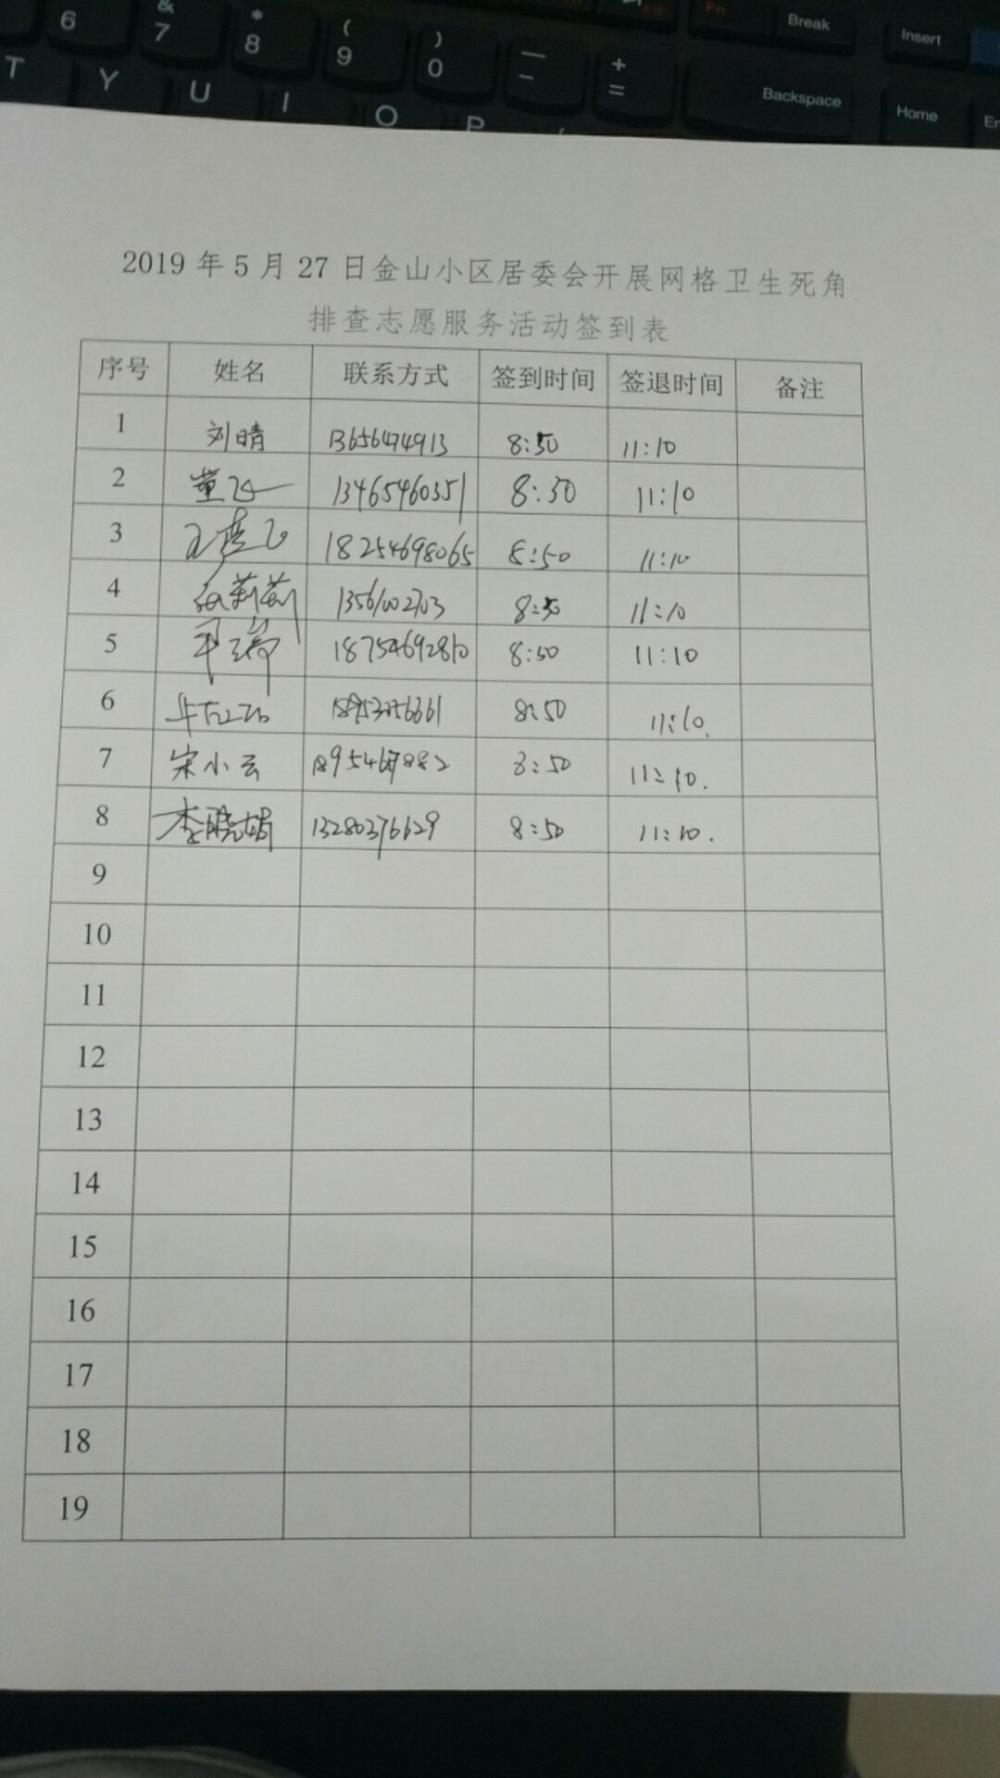 6 & 7 * 8 ( 9 ) 0 — - + = Break Insert
T Y U I O P Backspace Home
2019年5月27日金山小区居委会开展网格卫生死角
排查志愿服务活动签到表
序号 姓名 联系方式 签到时间 签退时间 备注
1 刘晴 13656474913 8:50 11:10
2 董飞 13465460351 8:50 11:10
3 18254698065 8:50 11:10
4 张莉莉 13561002703 8:50 11:10
5 18754692810 8:50 11:10
6 8:50 11:10.
7 宋小云 8:50 11:10.
8 李晓娟 13280376629 8:50 11:10.
9
10
11
12
13
14
15
16
17
18
19